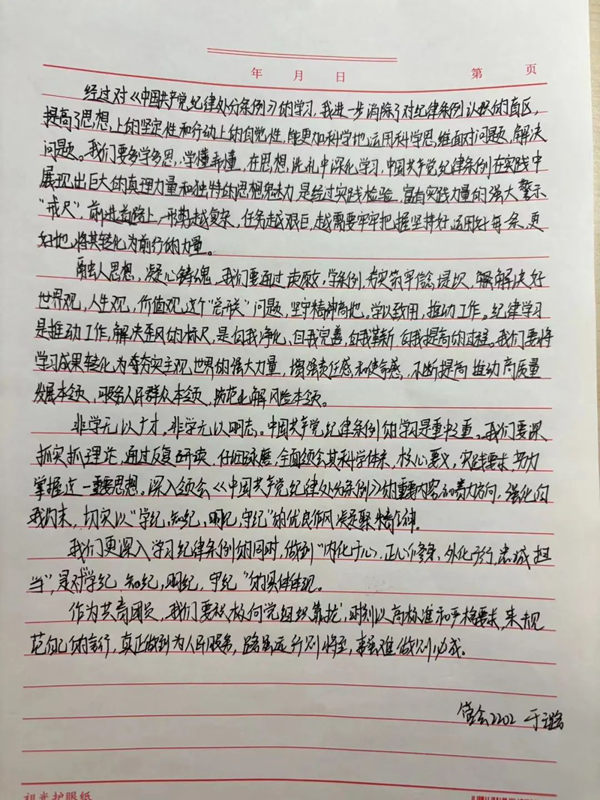 年 月 日 第 页
经过对《中国共产党纪律处分条例》的学习,我进一步消除了对纪律条例认识的盲区,
提高了思想上的坚定性和行动上的自觉性,能更加科学地运用科学思维面对问题,解决
问题。我们要多学多思,学懂弄懂,在思想洗礼中深化学习,中国共产党纪律条例在实践中
展现出巨大的真理力量和独特的思想魅力,是经过实践检验,富有实践力量的强大警示
“戒尺”,前进道路上,形势越复杂,任务越艰巨,越需要牢牢把握坚持好、运用好每一条,更
好地将其转化为前行的力量。
融入思想,凝心铸魂,我们要通过读原文,学条例,夯实筑牢信念堤坝,解决好
世界观,人生观,价值观,这个“总开关”问题,坚守精神高地,学以致用,推动工作。纪律学习
是推动工作,解决歪风的标尺,是自我净化,自我完善,自我革新 自我提高的过程,我们要将
学习成果转化为夯实主观世界的强大力量,增强责任感和使命感,不断提高推动高质量
发展本领,服务人民群众本领,防范化解风险本领。
非学无以广才,非学无以明志。中国共产党纪律条例的学习是重中之重,我们要深
抓实抓理论,通过反复研读,仔细琢磨,全面领会其科学体系,核心要义,实践要求,努力
掌握这一重要思想,深入领会《中国共产党纪律处分条例》的重要内容和着力方向,强化自
我约束,切实以“学纪,知纪,明纪,守纪”的优良作风凝聚精气神。
我们更深入学习纪律条例的同时,做到“内化于心,正心修身,外化于行,忠诚担
当”,是对“学纪 知纪,明纪,守纪”的具体体现。
作为共青团员,我们要积极向党组织靠拢,时刻以高标准和严格要求,来规
范自己的言行,真正做到为人民服务,路虽远行则将至,事虽难做则必成。
2202 于
护眼纸